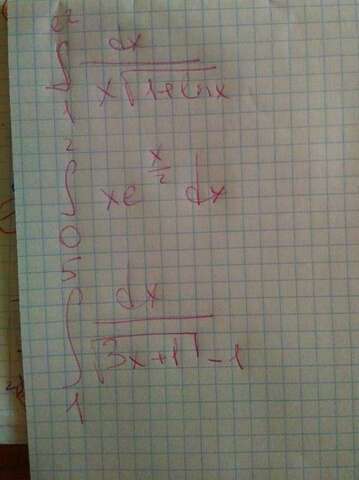 ∫₁^{e²} dx / (x√(1+lnx))
∫₀² xe^{x/2} dx
∫₁⁵ dx / (√(3x+1) - 1)